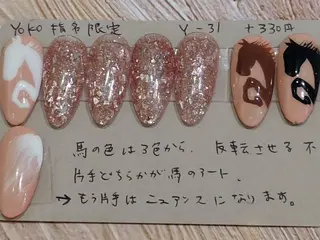 YOKO 指名限定 Y-31 +330円
馬の色は3色から、反転させる不
片手どちらかが馬のアート。
→もう片手はニュアンスになります。